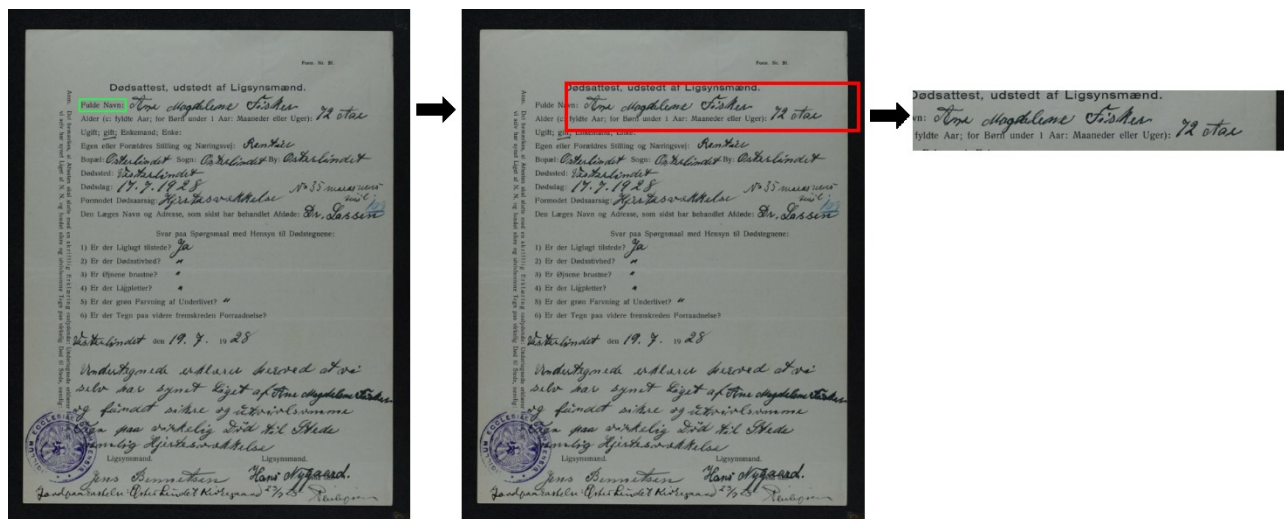 Form. Nr. 30.
Dødsattest, udstedt af Ligsynsmænd.
Fulde Navn: Ane Magdelene Fisker
Alder (: fyldte Aar; for Børn under 1 Aar: Maaneder eller Uger): 72 Aar
Ugift; gift; Enkemand; Enke:
Egen eller Forældres Stilling og Næringsvej: Rentier
Bopæl: Østerlindet Sogn: Østerlindet By: Østerlindet
Dødssted: Vesterlindet
Dødsdag: 17.7.1928 No 35
Formodet Dødsaarsag: Hjertesvækkelse
Den Læges Navn og Adresse, som sidst har behandlet Afdøde: Dr. Lassen
Svar paa Spørgsmaal med Hensyn til Dødstegnene:
1) Er der Liglugt tilstede? Ja
2) Er der Dødsstivhed? "
3) Er Øjnene brustne? "
4) Er der Ligpletter? "
5) Er der grøn Farvning af Underlivet? "
6) Er der Tegn paa videre fremskreden Forraadnelse?
Vesterlindet den 19. 7. 1928
Undertegnede erklærer herved at vi
selv har synet Liget af Ane Magdelene Fisker
og fundet sikre og utvivlsomme
Tegn paa virkelig Død til Stede
nemlig Hjertesvækkelse
Ligsynsmand. Ligsynsmand.
Jens Bennetsen Hans Nygaard.
Jordpaakastelse: Øster Lindet Kirkegaard
Dødsattest, udstedt af Ligsynsmænd.
Fulde Navn: Ane Magdelene Fisker
Alder (: fyldte Aar; for Børn under 1 Aar: Maaneder eller Uger): 72 Aar
Ugift; gift; Enkemand; Enke:
Egen eller Forældres Stilling og Næringsvej: Rentier
Bopæl: Østerlindet Sogn: Østerlindet By: Østerlindet
Dødssted: Vesterlindet
Dødsdag: 17.7.1928 No 35
Formodet Dødsaarsag: Hjertesvækkelse
Den Læges Navn og Adresse, som sidst har behandlet Afdøde: Dr. Lassen
Svar paa Spørgsmaal med Hensyn til Dødstegnene:
1) Er der Liglugt tilstede? Ja
2) Er der Dødsstivhed? "
3) Er Øjnene brustne? "
4) Er der Ligpletter? "
5) Er der grøn Farvning af Underlivet? "
6) Er der Tegn paa videre fremskreden Forraadnelse?
Vesterlindet den 19. 7. 1928
Undertegnede erklærer herved at vi
selv har synet Liget af Ane Magdelene Fisker
og fundet sikre og utvivlsomme
Tegn paa virkelig Død til Stede
nemlig Hjertesvækkelse
Ligsynsmand. Ligsynsmand.
Jens Bennetsen Hans Nygaard.
Jordpaakastelse: Øster Lindet Kirkegaard
Dødsattest, udstedt af Ligsynsmænd.
vn: Ane Magdelene Fisker
fyldte Aar; for Børn under 1 Aar: Maaneder eller Uger): 72 Aar